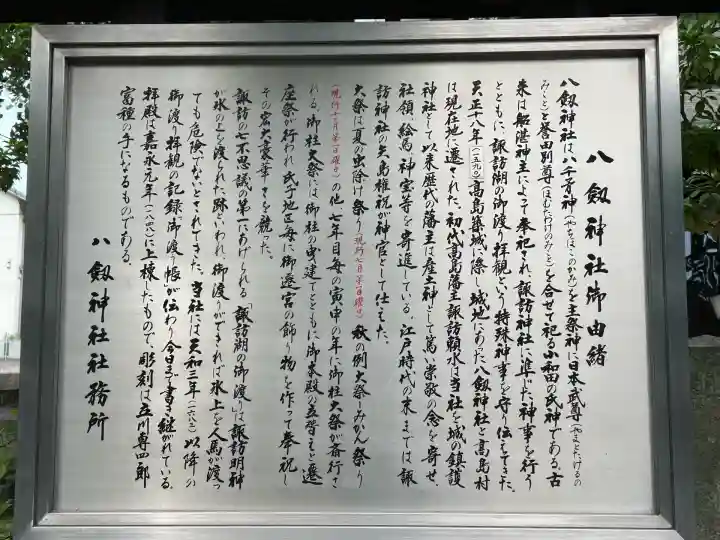 八劔神社御由緒
八劔神社は八千矛神(やちほこのかみ)を主祭神に日本武尊(やまとたけるの
みこと)と誉田別尊(ほむたわけのみこと)を合せて祀る小和田の氏神である。古
来は船湛神主によって奉祀され諏訪神社に準じた神事を行う
とともに、諏訪湖の御渡り拝観という特殊神事を守り伝えてきた。
天正十八年(一五九〇)高島築城に際し城地にあった八劔神社と高島村
は現在地に遷された。初代高島藩主諏訪頼水は当社を城の鎮護
神社として以来歴代の藩主は産土神として篤い崇敬の念を寄せ、
社領、絵馬、神宝等を寄進している。江戸時代の末までは諏
訪神社の矢島権祝が神官として仕えた。
大祭は夏の虫除け祭り(現行七月第一日曜日)秋の例大祭―みかん祭り
(現行十月第一日曜日)の他、七年目毎の寅申の年に御柱大祭が斎行さ
れる。御柱大祭には御柱の曳建てとともに御本殿の立替えと遷
座祭が行われ氏子地区毎に御遷宮の飾り物を作って奉祝し
その宏大豪華さを競った。
諏訪の七不思議の第一にあげられる「諏訪湖の御渡り」は諏訪明神
が氷の上を渡られた跡といわれ、御渡りができれば氷上を人馬が渡っ
ても危険でないとされてきた。当社には天和三年(一六八三)以降の
御渡り拝観の記録「御渡り帳」が伝わり今日まで書き継がれている。
拝殿は嘉永元年(一八四八)に上棟したもので、彫刻は立川専四郎
富種の手になるものである。
八劔神社社務所